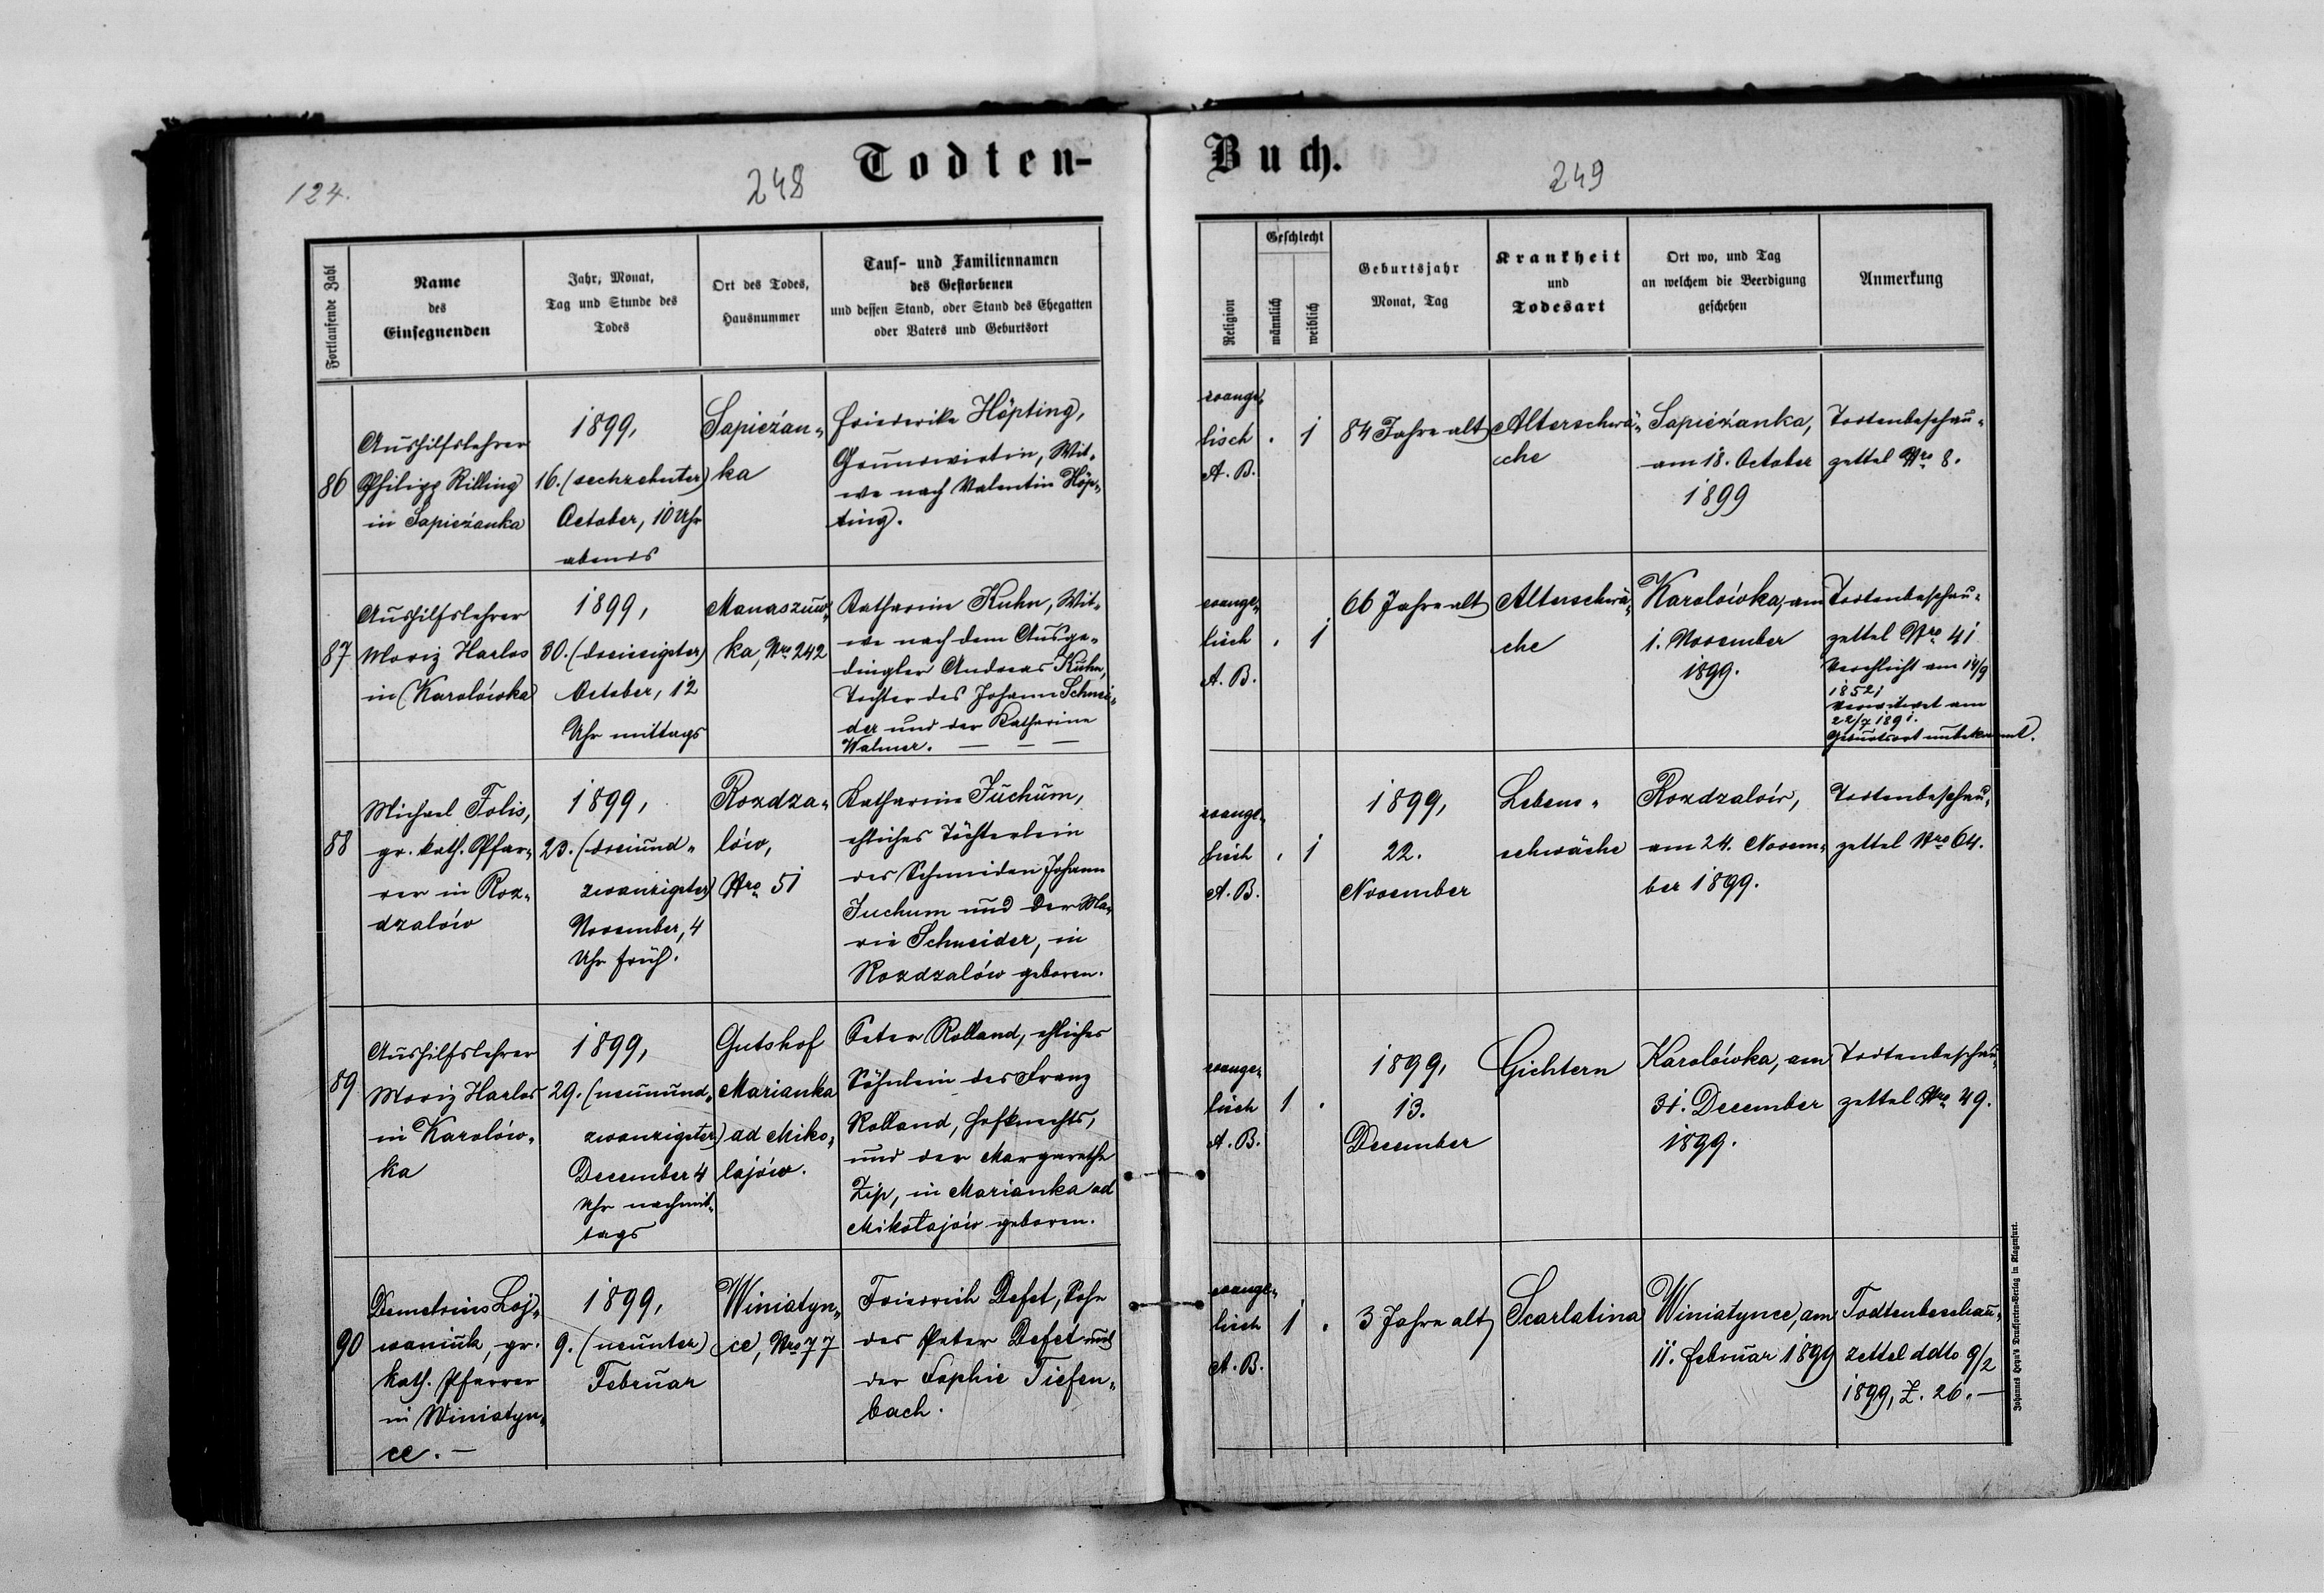 Todten-
Buch.
124.
248
249
Fortlaufende Zahl
Name
des
Einsegnenden
Jahr, Monat,
Tag und Stunde des
Todes
Ort des Todes,
Hausnummer
Tauf- und Familiennamen
des Gestorbenen
und dessen Stand, oder Stand des Ehegatten
oder Vaters und Geburtsort
Religion
Geschlecht
männlich
weiblich
Geburtsjahr
Monat, Tag
Krankheit
und
Todesart
Ort wo, und Tag
an welchem die Beerdigung
geschehen
Anmerkung
86
Aushilfslehrer
Philipp Rilling
in Sapieżanka
1899,
16. (sechzehnter)
October, 10 Uhr
abends
Sapieżan-
ka
Friederike Höpting,
Grundwirtin, Wit-
we nach Valentin Höp-
ting.
evange-
lisch
A. B.
. 1
84 Jahre alt
Alterschwä-
che
Sapieżanka,
am 18. October
1899
Todtenbeschau-
zettel Nro 8.
87
Aushilfslehrer
Moriz Harlos
in Karolówka
1899,
30. (dreissigster)
October, 12
Uhr mittags
Manaszuw-
ka, Nro 242
Katharine Kuhn, Wit-
we nach dem Ausge-
dingler Andreas Kuhn,
Tochter des Johann Schnei-
der und der Katharina
Walmer. — — —
evange-
lisch
A. B.
. 1
66 Jahre alt
Alterschwä-
che
Karolówka, am
1. November
1899.
Todtenbeschau-
zettel Nro 41
Verehlicht am 14/9
1852;
Verwitwet am
22/7 1891.
Geburtsort unbekannt.
88
Michael Folis,
gr. kath. Pfar-
rer in Roz-
dzalów
1899,
23. (dreiund-
zwanzigster)
November, 4
Uhr früh.
Rozdza-
lów,
Nro 51
Katharine Juchum,
ehliches Töchterlein
des Schmiden Johann
Juchum und der Ma-
rie Schneider, in
Rozdzalów geboren.
evange-
lisch
A. B.
. 1
1899,
22.
November
Lebens-
schwäche
Rozdzalów,
am 24. Novem-
ber 1899.
Todtenbeschau-
zettel Nro 64.
89
Aushilfslehrer
Moriz Harlos
in Karolów-
ka
1899,
29. (neunund-
zwanzigster)
December 4
Uhr nachmit-
tags
Gutshof
Marianka
ad Miko-
lajów.
Peter Rolland, ehliches
Söhnlein des Franz
Rolland, Hofknechts,
und der Margarethe
Zip, in Marianka ad
Mikołajów geboren.
evange-
lisch
A. B.
1 .
1899,
13.
December
Gichtern
Karolówka, am
31. December
1899.
Todtenbeschau-
zettel Nro 49.
90
Demetrius Loj-
waniuk, gr.
kath. Pfarrer
in Winiatyn-
ce. —
1899,
9. (neunter)
Februar
Winiatyn-
ce, Nro 77
Friedrich Defet, Sohn
des Peter Defet und
der Sophie Tiefen-
bach.
evange-
lisch
A. B.
1 .
3 Jahre alt
Scarlatina
Winiatynce, am
11. Februar 1899
Todtenbeschau-
zettel ddto 9/2
1899, Z. 26. —
Johannes Heyn's Drucksorten-Verlag in Klagenfurt.